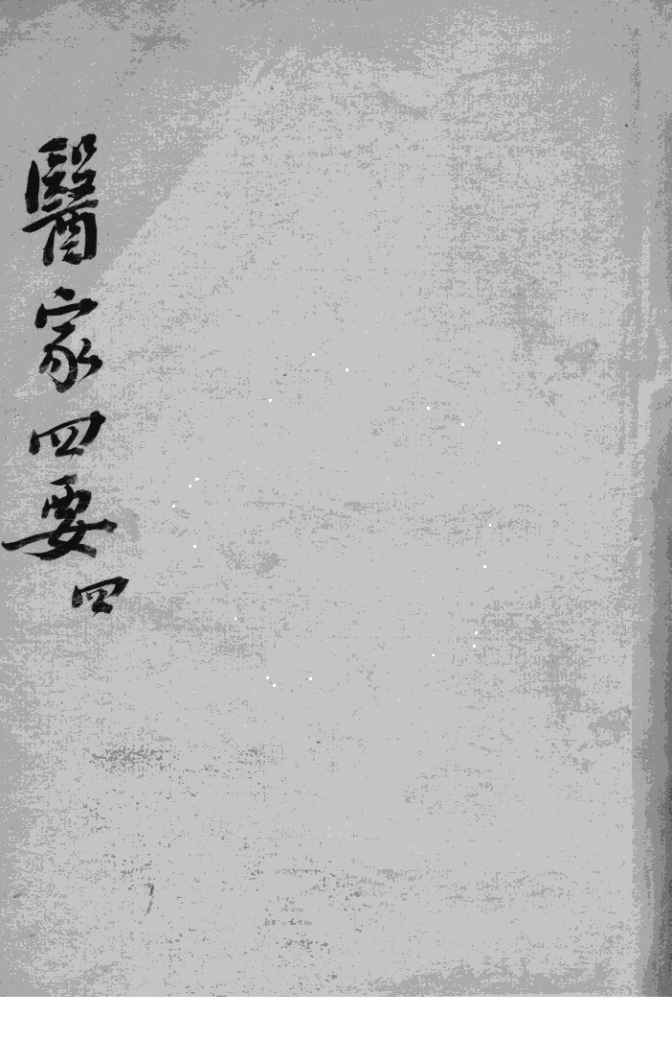 醫家四要
四